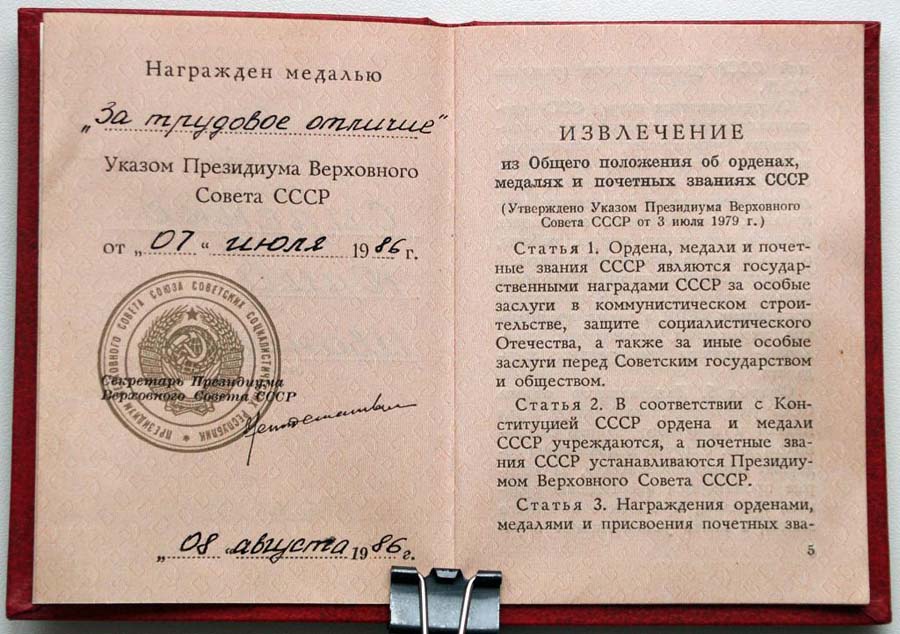 Награжден медалью
„За трудовое отличие“
Указом Президиума Верховного
Совета СССР
от „07“ июля 1986 г.
ПРЕЗИДИУМ ВЕРХОВНОГО СОВЕТА СОЮЗА СОВЕТСКИХ СОЦИАЛИСТИЧЕСКИХ РЕСПУБЛИК
Секретарь Президиума
Верховного Совета СССР
„08“ августа 1986 г.
ИЗВЛЕЧЕНИЕ
из Общего положения об орденах,
медалях и почетных званиях СССР
(Утверждено Указом Президиума Верховного
Совета СССР от 3 июля 1979 г.)
Статья 1. Ордена, медали и почет-
ные звания СССР являются государ-
ственными наградами СССР за особые
заслуги в коммунистическом строи-
тельстве, защите социалистического
Отечества, а также за иные особые
заслуги перед Советским государством
и обществом.
Статья 2. В соответствии с Кон-
ституцией СССР ордена и медали
СССР учреждаются, а почетные зва-
ния СССР устанавливаются Президиу-
мом Верховного Совета СССР.
Статья 3. Награждения орденами,
медалями и присвоения почетных зва-
5